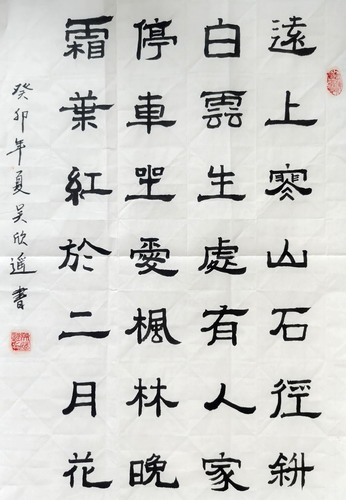 遠上寒山石徑斜
白雲生處有人家
停車坐愛楓林晚
霜葉紅於二月花
癸卯年夏吴欣遥書